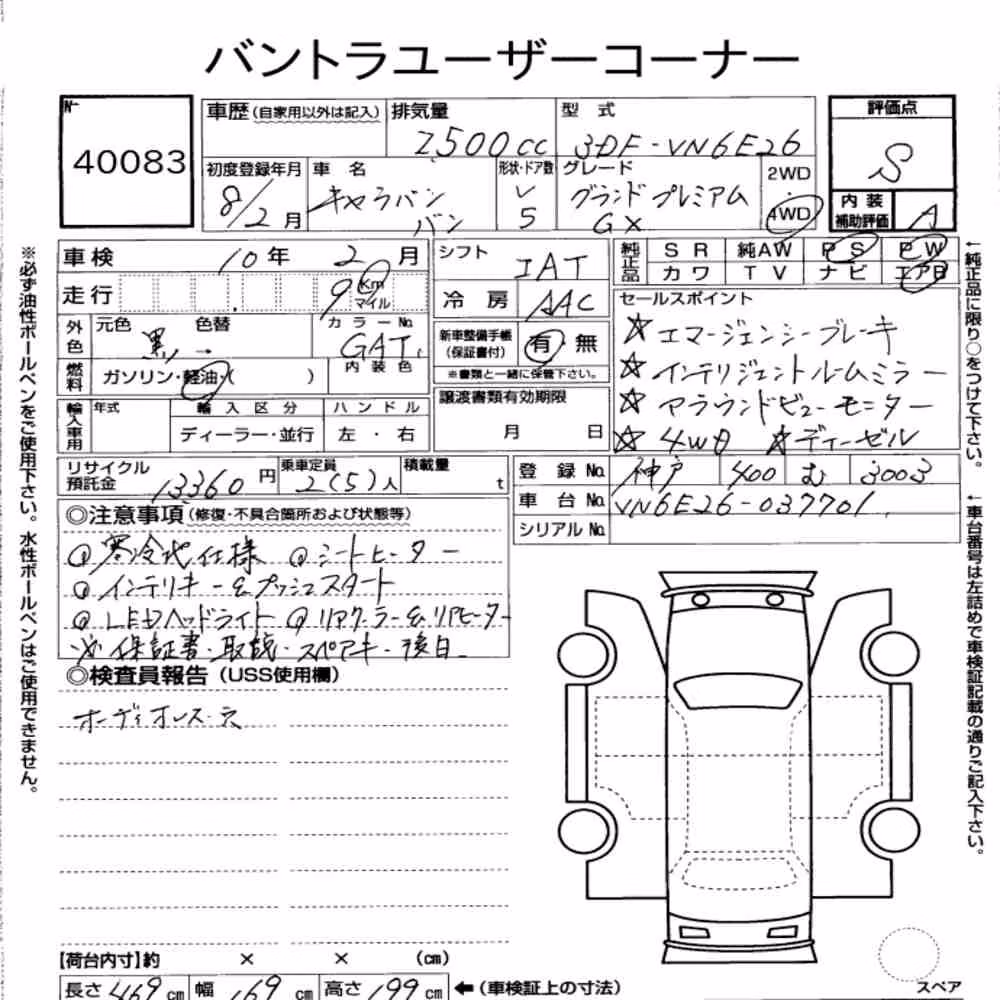 バントラユーザーコーナー
No.
40083
車歴(自家用以外は記入)
排気量
2500cc
型 式
3DF-VN6E26
評価点
S
初度登録年月
8/2月
車 名
キャラバン
バン
形状・ドア数
V
5
グレード
グランドプレミアム
GX
2WD
・
4WD
内 装
補助評価
A
車検
10年 2月
走行
9 Km
マイル
シフト
IAT
冷 房
AAC
純正品
S R 純AW P S P W
カワ T V ナビ エアB
外色
元色 色替
黒
カラーNo.
GAT
内 装 色
燃料
ガソリン・軽油・( )
新車整備手帳
(保証書付)
有・無
※書類と一緒に保管下さい。
セールスポイント
☆エマージェンシーブレーキ
☆インテリジェントルームミラー
☆アラウンドビューモニター
☆4WD ☆ディーゼル
輸入車用
年式
輸 入 区 分
ハ ン ド ル
ディーラー・並行
左 ・ 右
譲渡書類有効期限
月 日
リサイクル
預託金
13360円
乗車定員
2(5)人
積載量
t
登 録 No.
神戸 400 む 3003
車 台 No.
VN6E26-037701
シリアル No.
◎注意事項(修復・不具合箇所および状態等)
◎寒冷地仕様 ◎シートヒーター
◎インテリキー&プッシュスタート
◎LEDヘッドライト ◎リアクーラー&リアヒーター
※保証書・取説・スペアキー後日
◎検査員報告(USS使用欄)
オーディオレス・穴
【荷台内寸】約 × × (cm)
長さ 469cm 幅 169cm 高さ 199cm ←(車検証上の寸法)
スペア
※必ず油性ボールペンをご使用下さい。水性ボールペンはご使用できません。
←純正品に限り○をつけて下さい。
←車台番号は左詰めで車検証記載の通りご記入下さい。